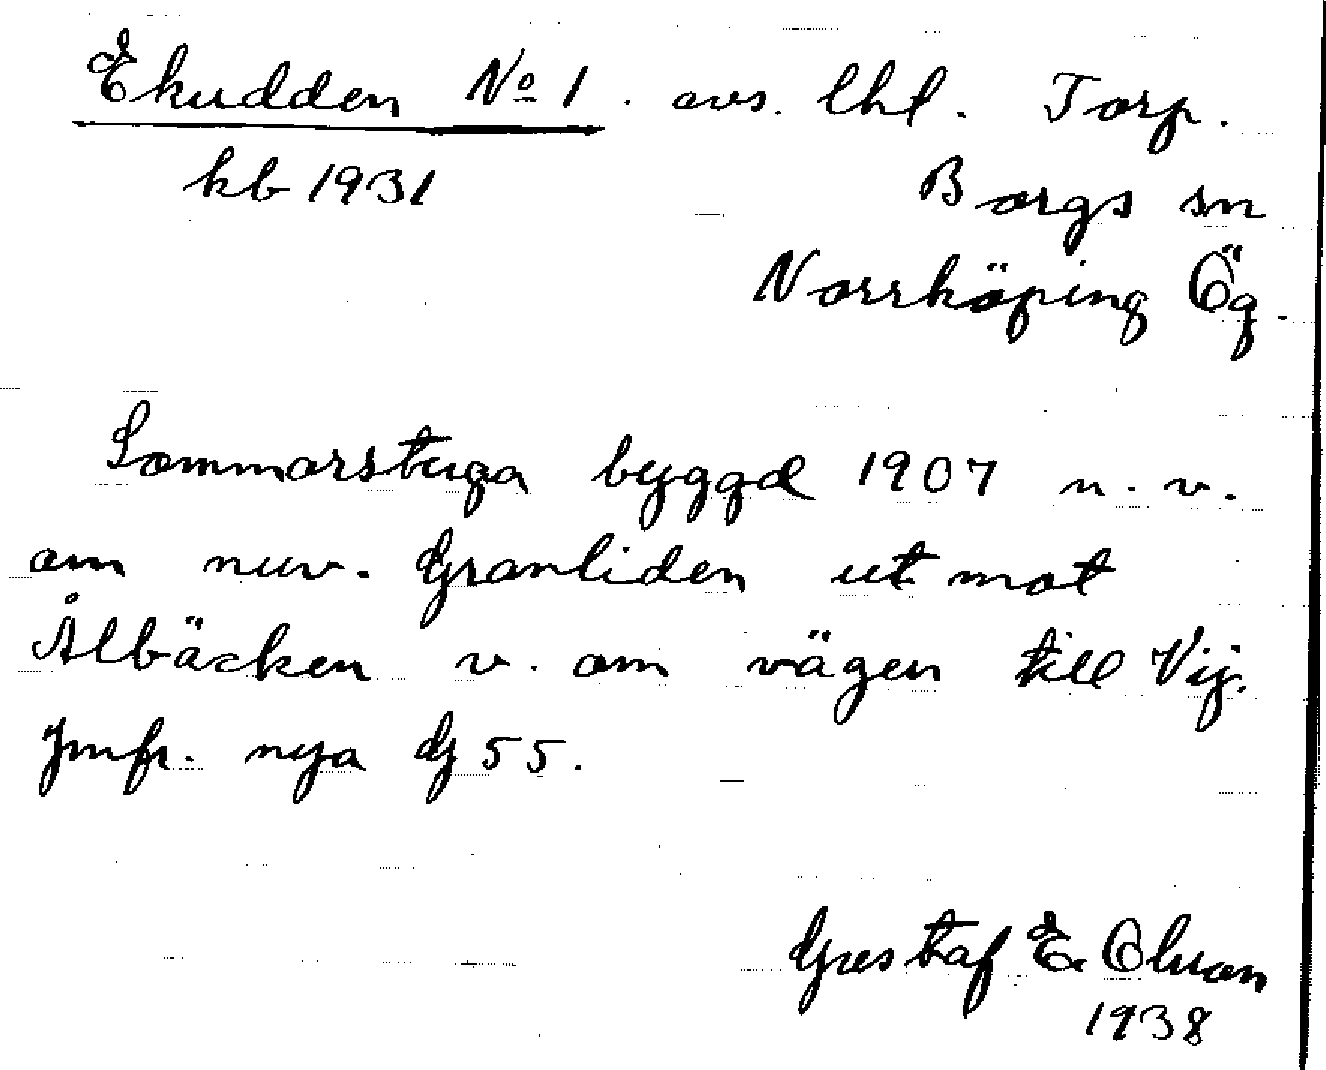 Ekudden No 1. avs. lhl. Torp.
kb 1931 Borgs sn
Norrköping Ög.
Sommarstuga byggd 1907 n.v.
om nuv. Granliden ut mot
Ålbäcken v. om vägen till Vij.
Jmfr. nya G 55.
Gustaf E. Olsson
1938